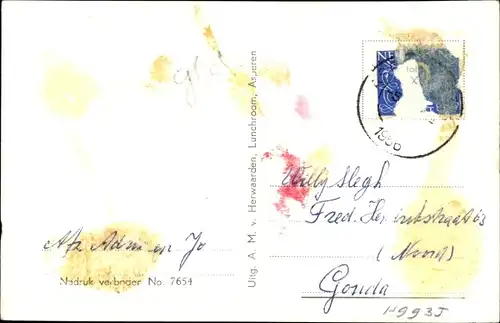 Afz. Adri en Jo
Nadruk verboden No. 7654
Uitg. A. M. v. Herwaarden, Lunchroom, Asperen
Willy Slegh
Fred. Hendrikstraat 63
(Noord)
Gouda
H993J